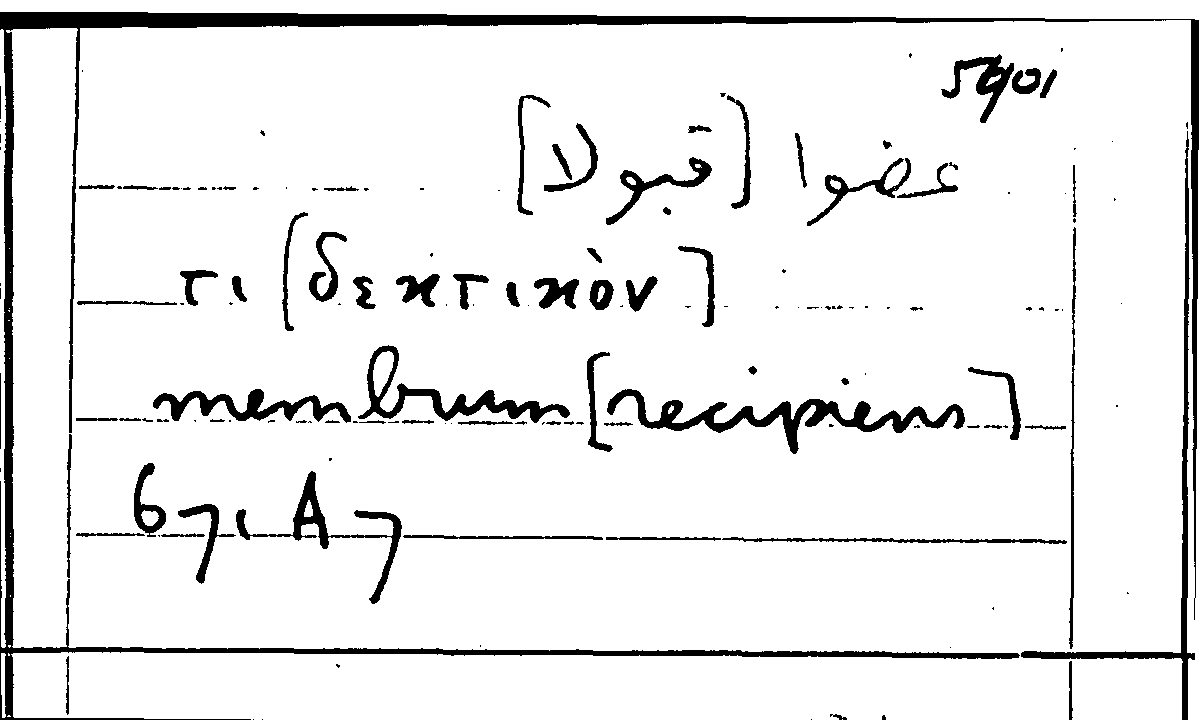 5901
عضوا [قبولا]
τι [δεκτικὸν]
membrum [recipiens]
671 A 7